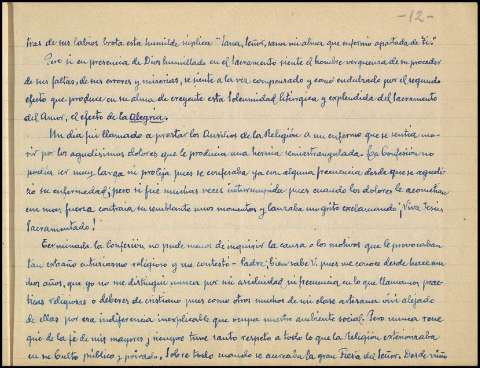 -12-
tras de sus labios brota esta humilde súplica "Sana, Señor, sana mi alma que enfermó apartada de Ti."
Pero si en presencia de Dios humillado en el Sacramento siente el hombre vergüenza de su proceder
de sus faltas, de sus errores y miserias, se siente a la vez compensado y como endulzado por el segundo
efecto que produce en su alma de creyente esta Solemnidad litúrgica y explendida del Sacramento
del Amor, el efecto de la Alegria.
Un dia fui llamado a prestar los Auxilios de la Religión a un enfermo que se sentia mo-
rir por los agudisimos dolores que le producia una hernia semiestrangulada. La Confesión no
podia ser muy larga ni prolija pues se confesaba ya con alguna frecuencia desde que se agudi
su enfermedad; pero si fué muchas veces interrumpida pues cuando los dolores le acometian
con mas fuerza contraia su semblante unos momentos y lanzaba un grito exclamando ¡Viva Jesús
Sacramentado!
Terminada la Confesión no pude menos de inquirir la causa o los motivos que le provocaban
tan extraño entusiasmo religioso y me contestó - Padre, bien sabe V. pues me conoce desde hace mu-
chos años, que yo no me distinguí nunca por mi asiduidad ni frecuencia en lo que llamamos prac-
ticas religiosas o deberes de cristiano pues como otros muchos de mi clase artesana viví alejado
de ellas por esa indiferencia inexplicable que ocupa nuestro ambiente social. Pero nunca rene
gué de la fé de mis mayores y siempre tuve santo respeto a todo lo que la Religión exteriorizaba
en su Culto público y privado, sobre todo cuando se acercaba la gran Fiesta del Señor. Desde niño